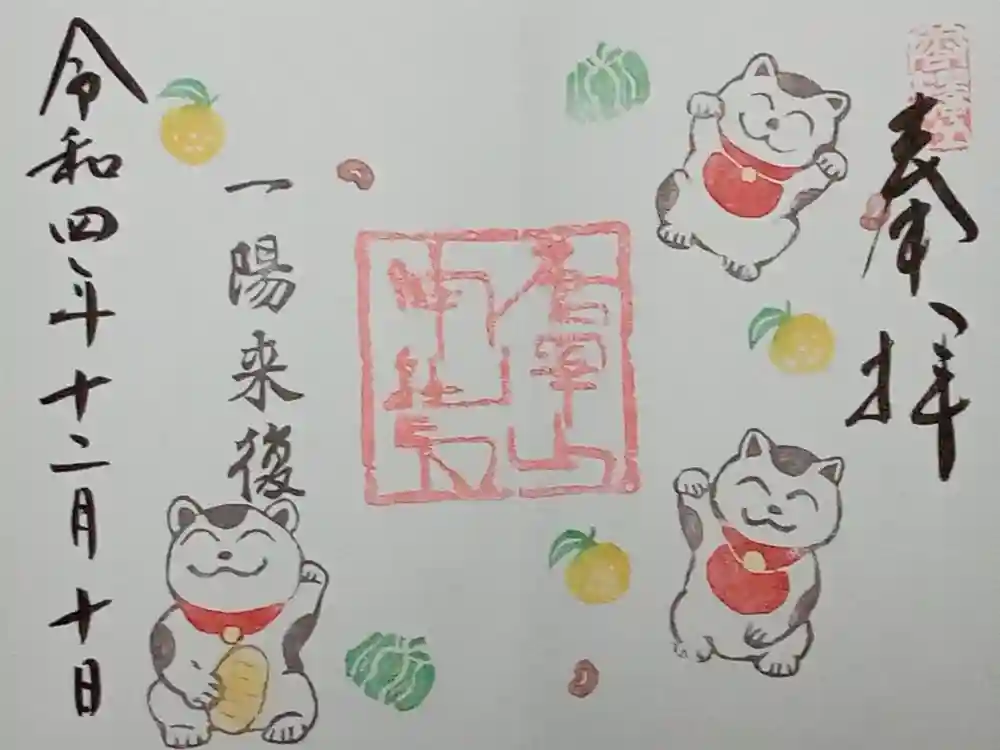 奉拝
一陽来復
令和四年十二月十日